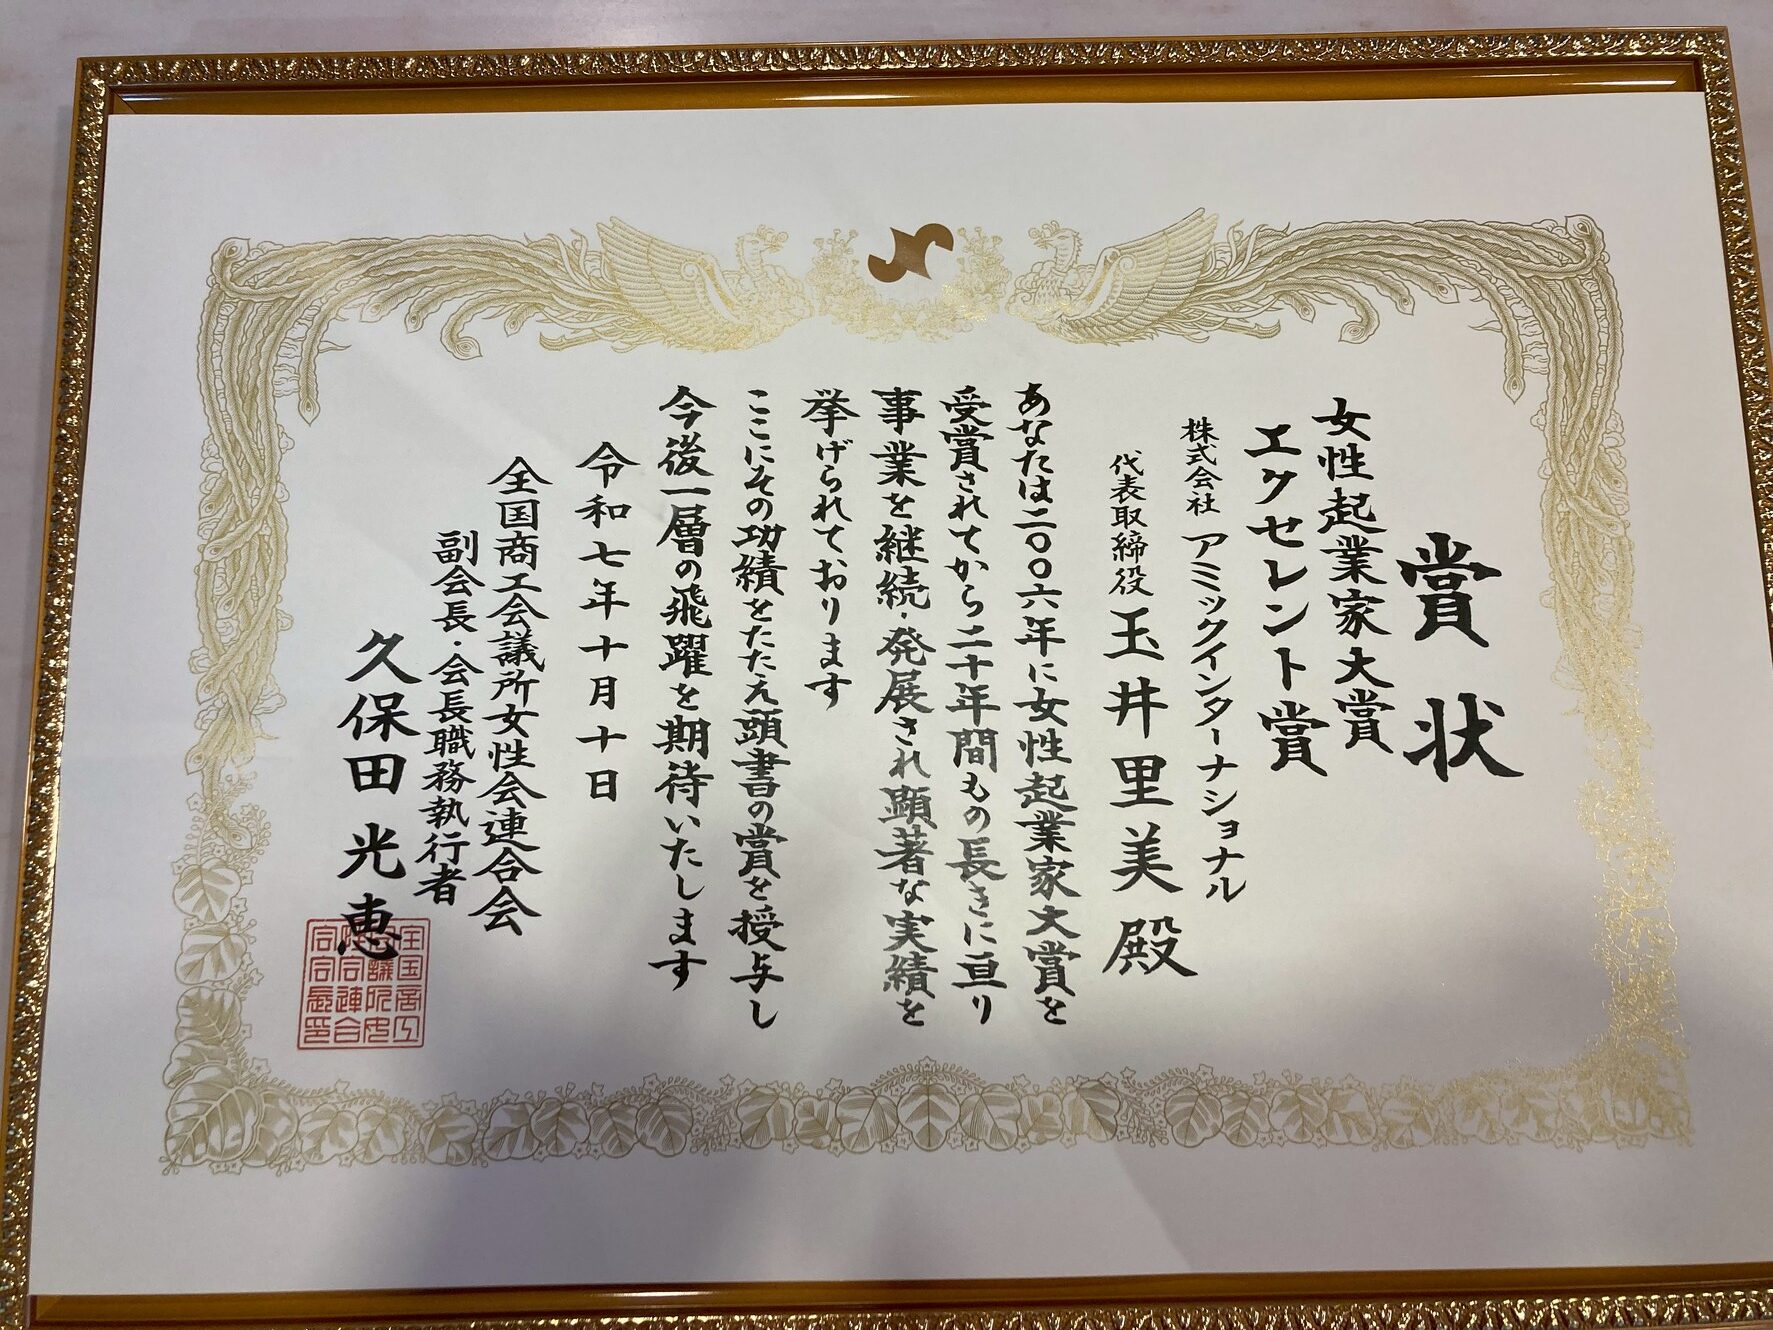 賞状
女性起業家大賞
エクセレント賞
株式会社 アミックインターナショナル
代表取締役 玉井里美殿
あなたは二〇〇六年に女性起業家大賞を
受賞されてから二十年間もの長きに亘り
事業を継続・発展され顕著な実績を
挙げられております
ここにその功績をたたえ頭書の賞を授与し
今後一層の飛躍を期待いたします
令和七年十月十日
全国商工会議所女性会連合会
副会長・会長職務執行者
久保田光恵